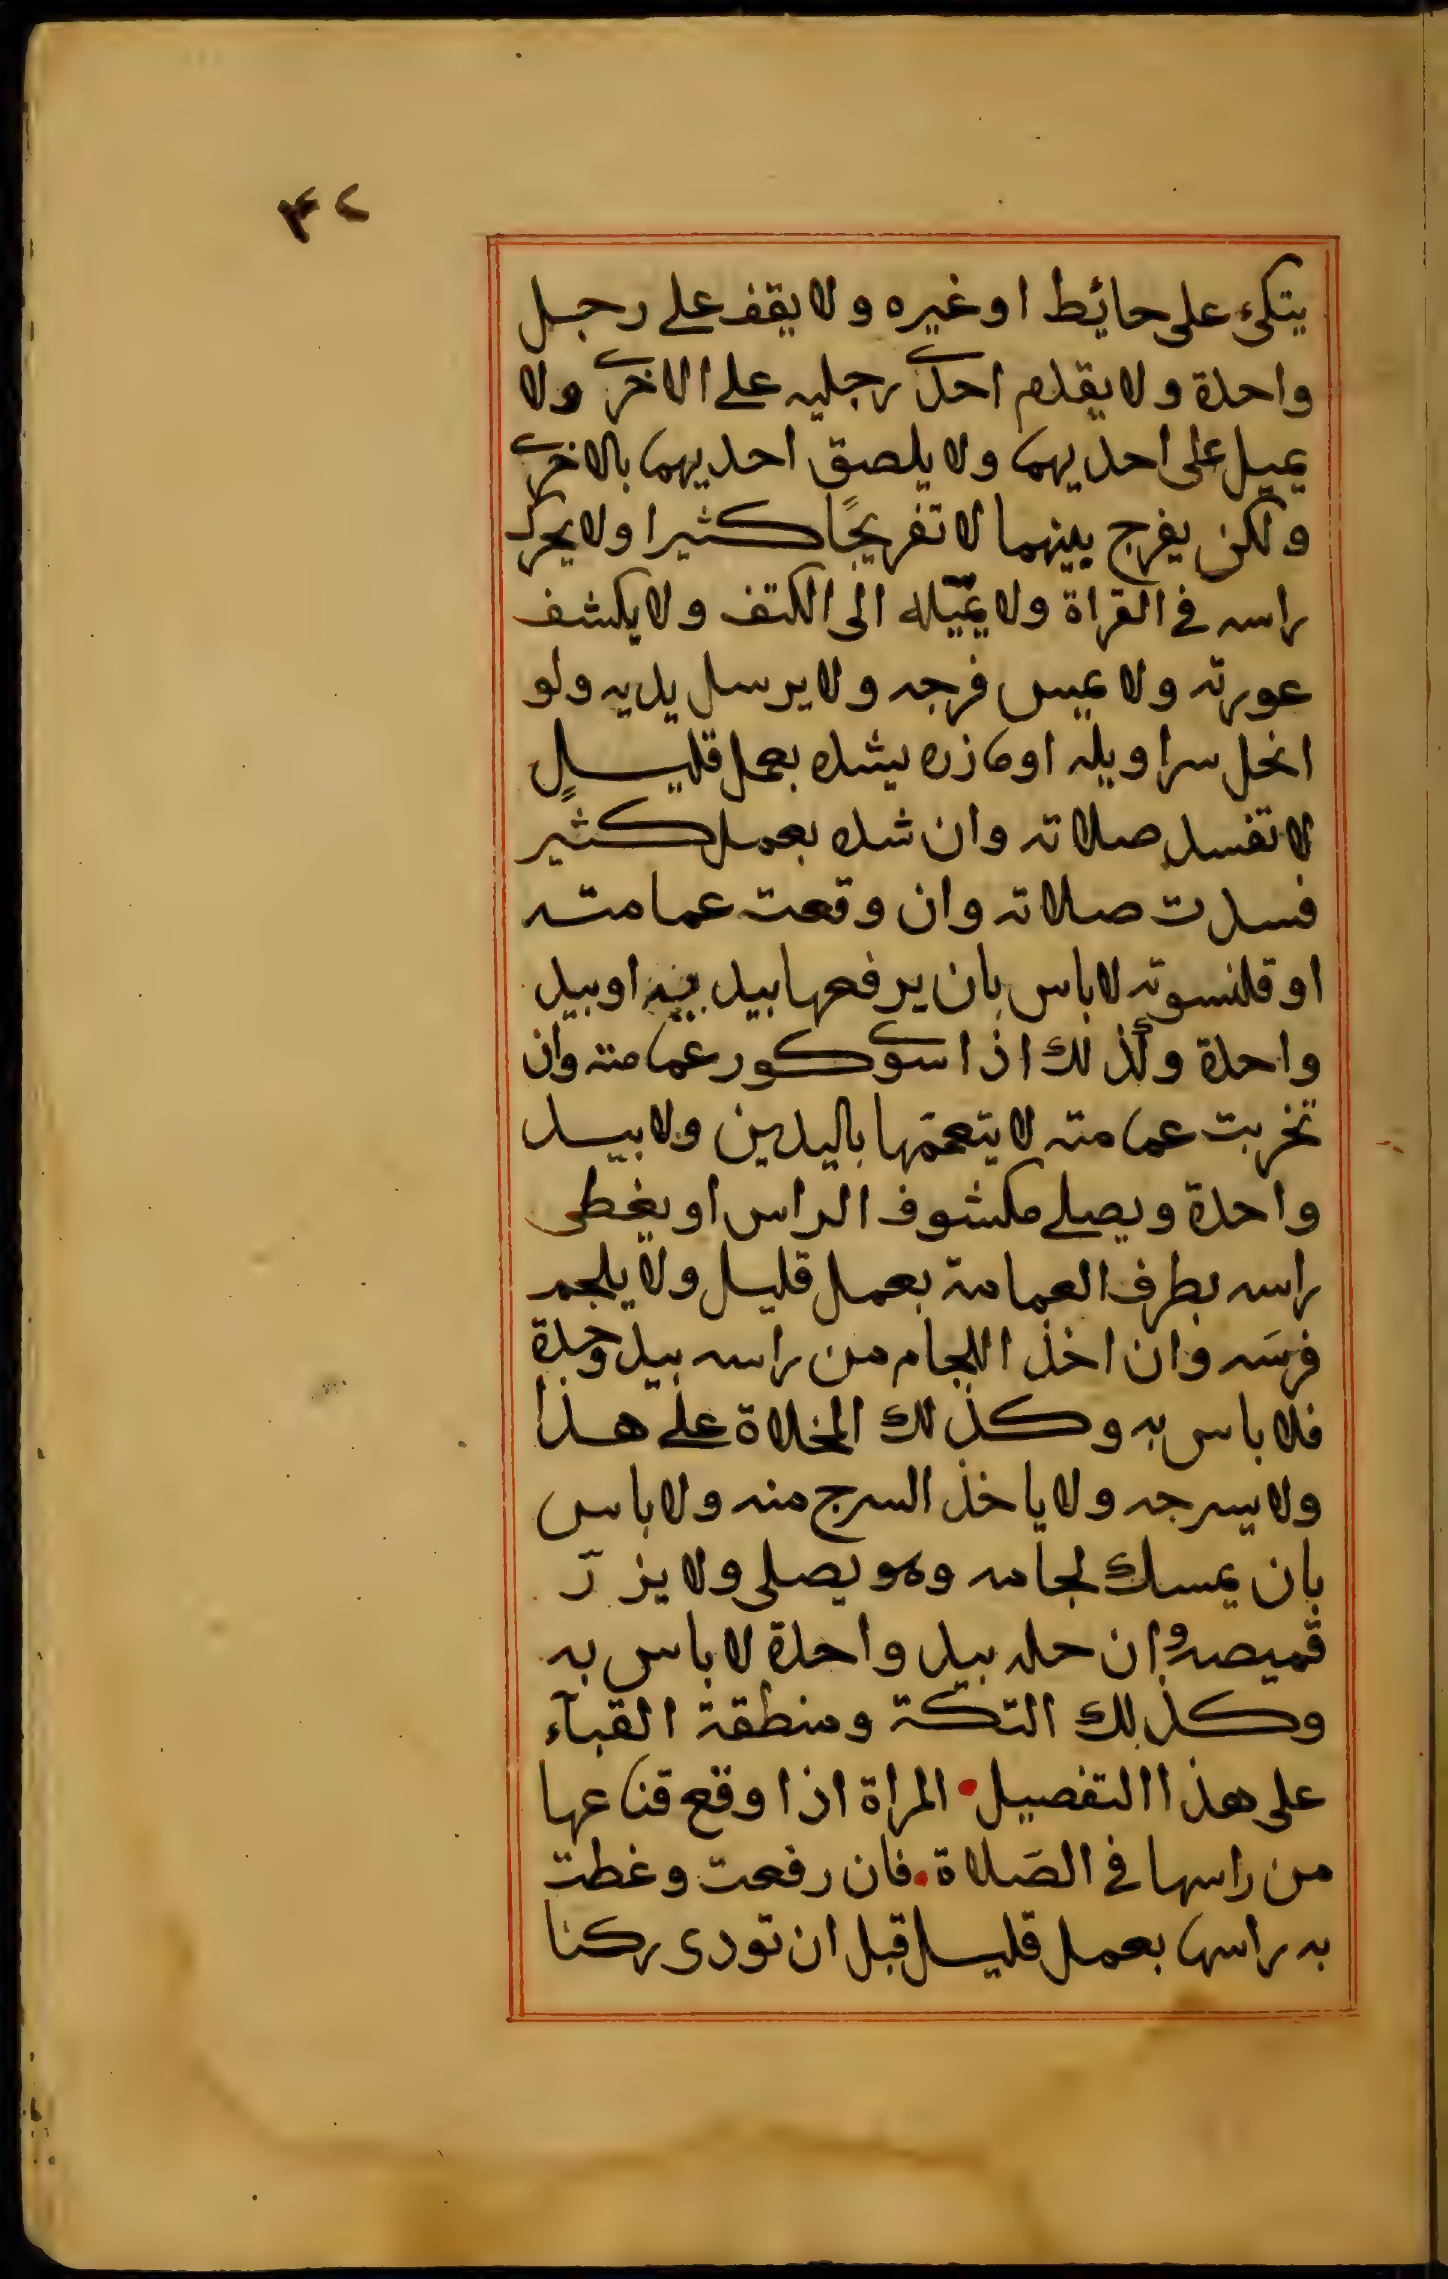 ٤٢
يتكئ على حائط او غيره ولا يقف على رجل
واحدة ولا يقدم احدى رجليه على الاخرى ولا
يميل على احديهما ولا يلصق احديهما بالاخرى
ولكن يفرج بينهما لا تفريجًا كثيرا ولا يحرك
راسه في القراة ولا يميّله الى الكتف ولا يكشف
عورته ولا يمس فرجه ولا يرسل يديه ولو
انحل سراويله او مازره يشده بعمل قليلٍ
لا تفسد صلاته وان شده بعمل كثير
فسدت صلاته وان وقعت عمامته
او قلنسوته لا باس بان يرفعها بيديه او بيد
واحدة وكذلك اذا سوى كور عمامته وان
تخربت عمامته لا يتعممها باليدين ولا بيد
واحدة ويصلى مكشوف الراس او يغطى
راسه بطرف العمامة بعمل قليل ولا يلجم
فرسَه وان اخذ اللجام من راسه بيد وحدة
فلا باس به وكذلك المخلاة على هذا
ولا يسرجه ولا ياخذ السرج منه ولا باس
بان يمسك لجامه وهو يصلى ولا يزرّ
قميصه وان حله بيد واحدة لا باس به
وكذلك التكة ومنطقة القبآء
على هذا التفصيل المراة اذا وقع قناعها
من راسها في الصَلاة فان رفعت وغطت
به راسها بعمل قليل قبل ان تودى ركنا